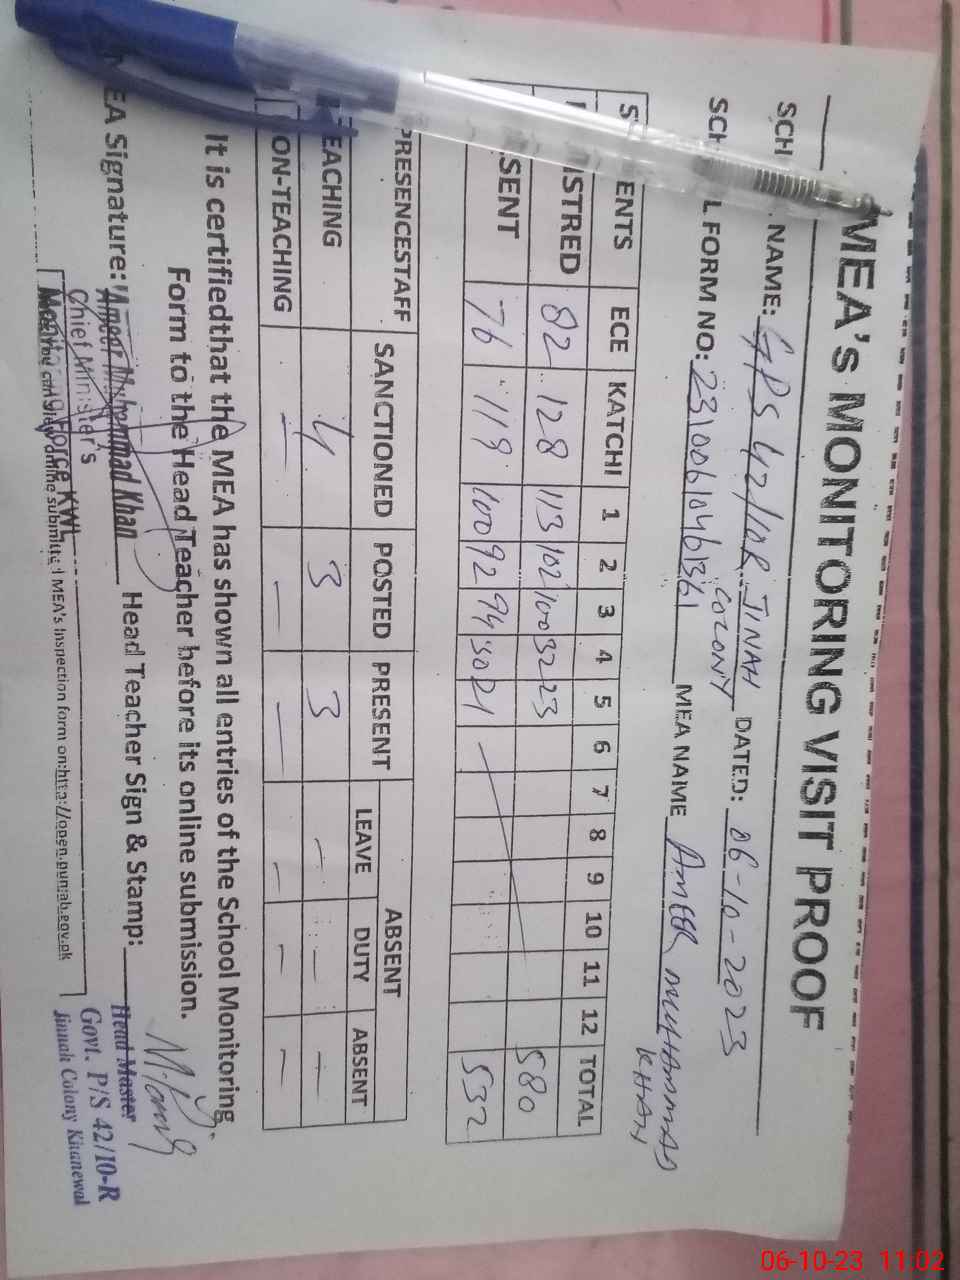 MEA's MONITORING VISIT PROOF
SCH NAME: GPS 42/10R JINAH COLONY DATED: 06-10-2023
SCH L FORM NO: 23100610461361 MEA NAME AMEER MUHAMMAD KHAN
S ENTS ECE KATCHI 1 2 3 4 5 6 7 8 9 10 11 12 TOTAL
ISTRED 82 128 113 102 100 32 23 580
SENT 76 119 100 92 94 30 21 532
PRESENCESTAFF SANCTIONED POSTED PRESENT ABSENT
LEAVE DUTY ABSENT
EACHING 4 3 3 – – –
ON-TEACHING – – – – – –
It is certifiedthat the MEA has shown all entries of the School Monitoring
Form to the Head Teacher before its online submission.
EA Signature: Head Teacher Sign & Stamp:
Ameer Muhammad Khan
Chief Minister's
Monitoring Force KWL
online submitted MEA's Inspection form on:http://open.punjab.gov.pk
Head Master
Govt. P/S 42/10-R
Jinnah Colony Khanewal
06-10-23 11:02